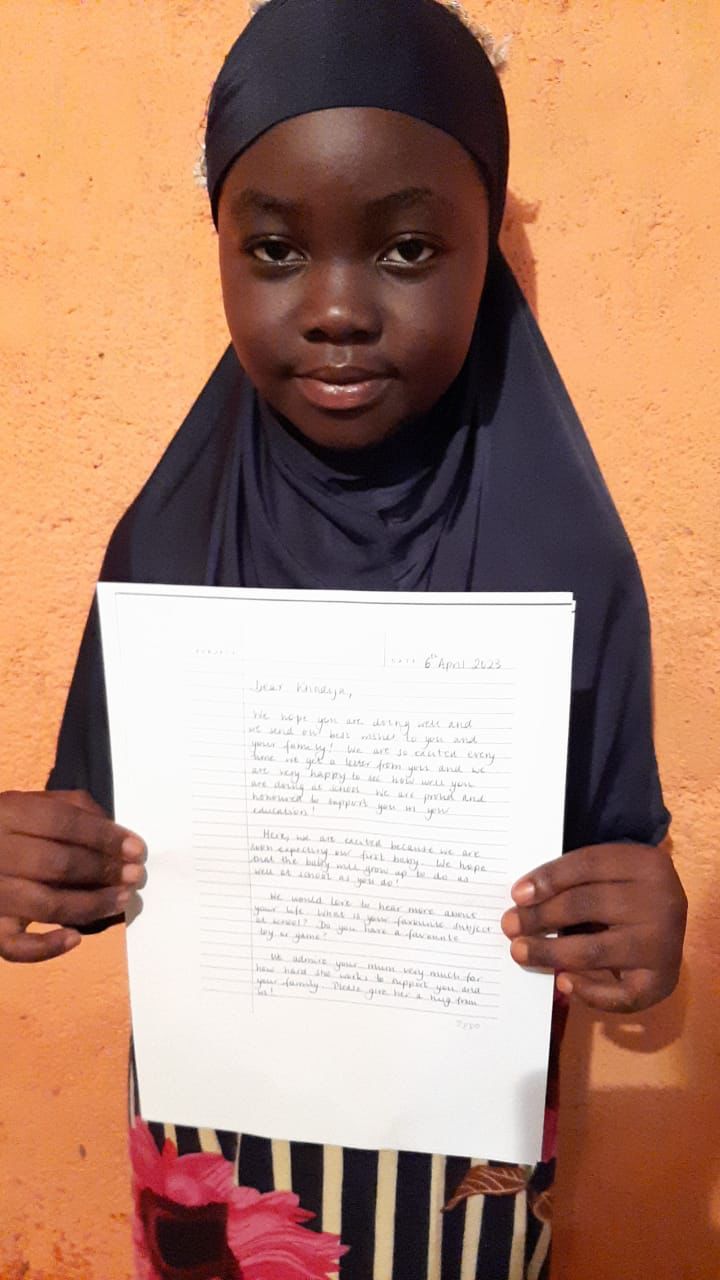 SUBJECT
DATE 6th April 2023
Dear Khadija,
We hope you are doing well and
we send our best wishes to you and
your family! We are so excited every
time we get a letter from you and we
are very happy to see how well you
are doing at school. We are proud and
honoured to support you in your
education!
Here, we are excited because we are
soon expecting our first baby. We hope
that the baby will grow up to do as
well at school as you do!
We would love to hear more about
your life. What is your favourite subject
at school? Do you have a favourite
toy or game?
We admire your mum very much for
how hard she works to support you and
your family. Please give her a hug from
us!